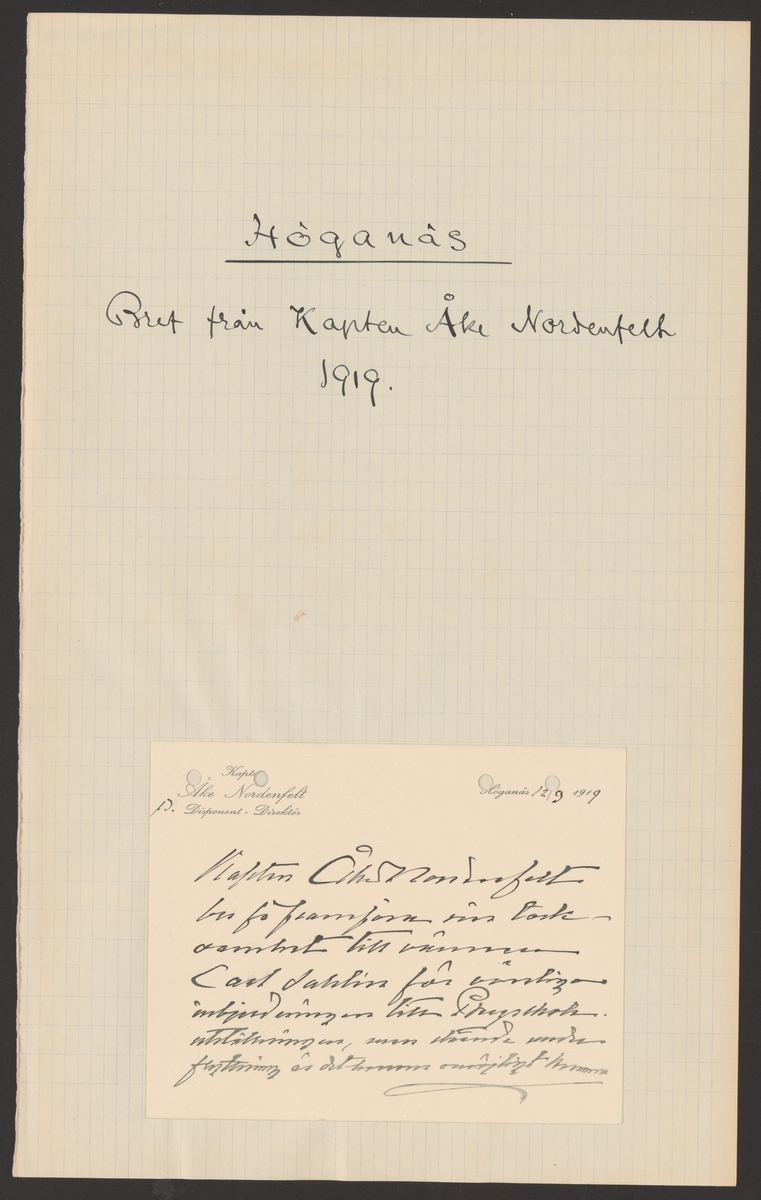 Höganäs
Bref från Kapten Åke Nordenfelt
1919.
Kapten
Åke Nordenfelt
Disponent - Direktör
Höganäs 12/9 1919
Kapten Åke Nordenfelt
ber få framföra sin tack-
samhet till vännen
Carl Sahlin för vänliga
inbjudningen till Bergsskole-
utställningen, men stående under
flyttning är det honom omöjligt komma